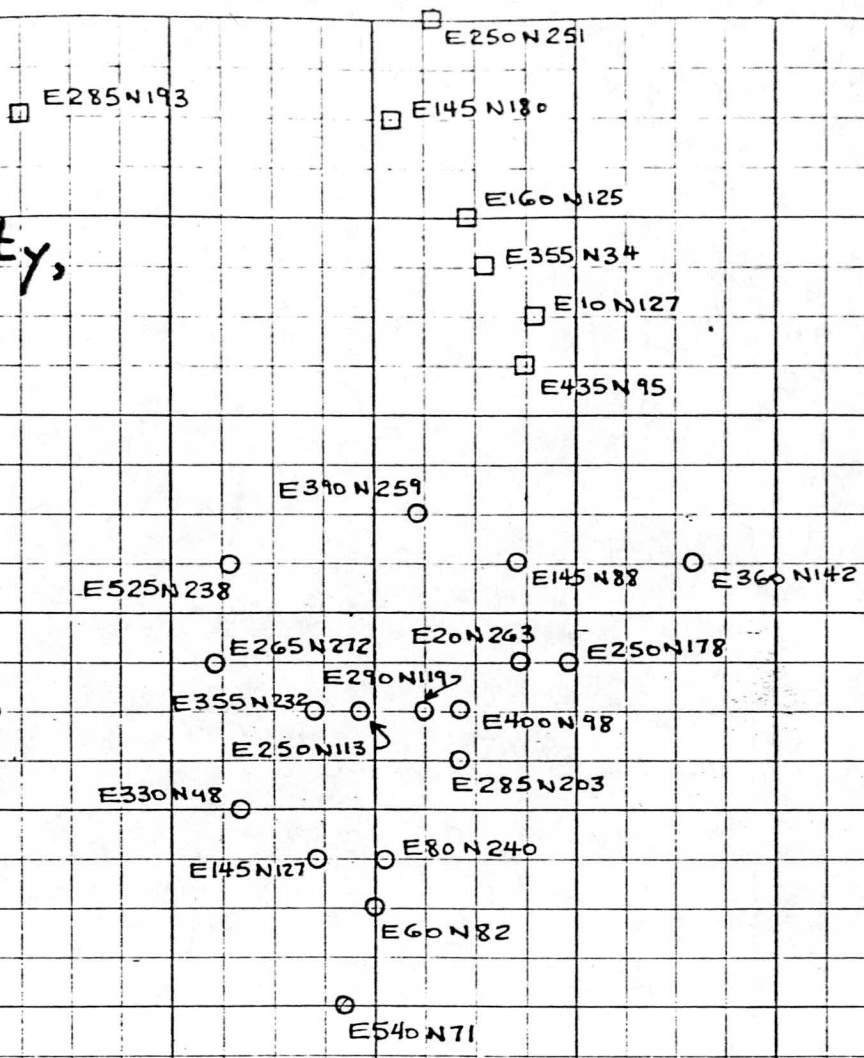 E250N251
E285N193
E145N180
E160N125
ty,
E355N34
E10N127
E435N95
E390N259
E525N238
E145N88
E360N142
E20N263
E265N272
E250N178
E290N119
E355N232
E400N98
E250N113
E285N203
E330N48
E145N127
E80N240
E60N82
E540N71